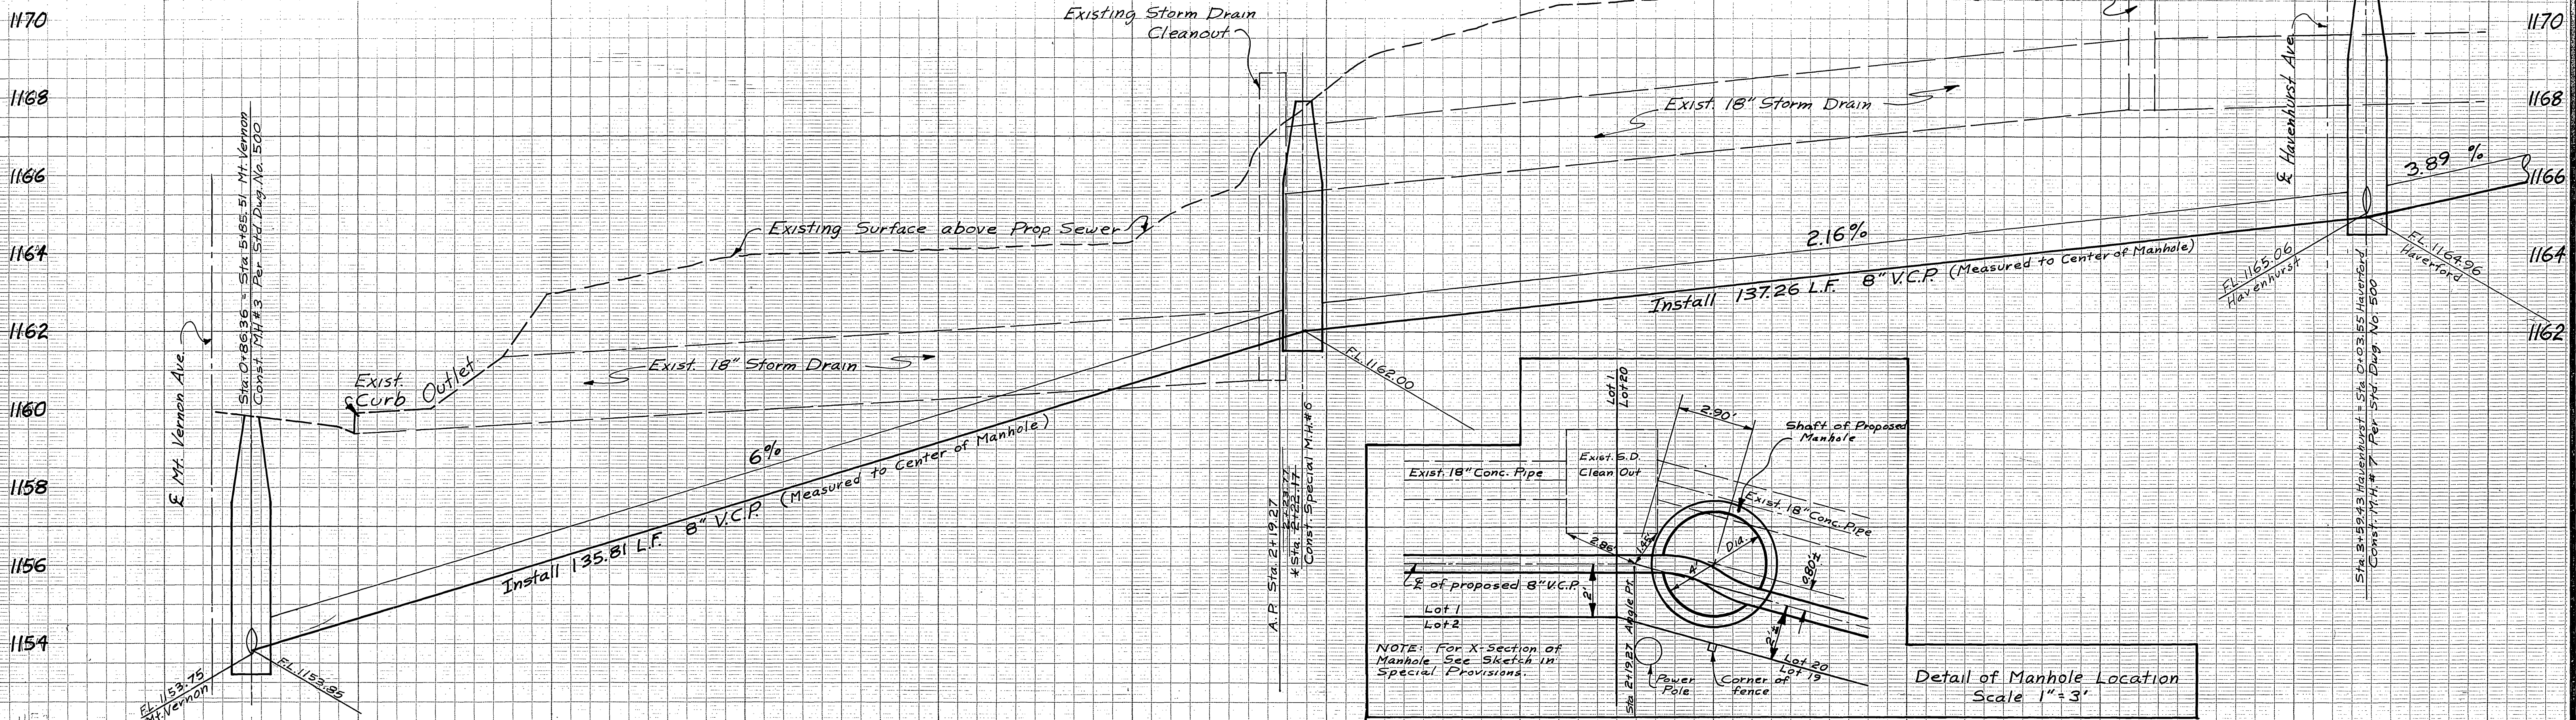 1170
1168
1166
1164
1162
1160
1158
1156
1154
℄ Mt. Vernon Ave.
Sta. 0+86.36 = Sta 5+85.51 Mt. Vernon
Const. M.H.#3 Per Std. Dwg. No. 500
F.L. 1153.75
Mt. Vernon
F.L. 1153.85
Exist.
Curb
Outlet
Exist. 18" Storm Drain
Existing Surface above Prop Sewer
6%
Install 135.81 L.F. 8" V.C.P. (Measured to Center of Manhole)
Existing Storm Drain
Cleanout
A.P. Sta. 2+19.27
*Sta. 2+22.17
Const. Special M.H.#6
F.L. 1162.00
Exist. 18" Storm Drain
2.16%
Install 137.26 L.F. 8" V.C.P. (Measured to Center of Manhole)
℄ Havenhurst Ave
3.89 %
F.L. 1165.06
Havenhurst
F.L. 1164.96
Haverford
Sta. 3+59.43 Havenhurst = Sta 0+03.55 Haverford
Const. M.H.#7 Per Std. Dwg. No. 500
1170
1168
1166
1164
1162
Lot 1
Lot 20
2.90'
Shaft of Proposed
Manhole
Exist. 18" Conc. Pipe
Exist. S.D.
Clean Out
Exist. 18" Conc. Pipe
2.86'
1.45'
Dia.
4'
0.80'±
℄ of proposed 8" V.C.P.
2'
Lot 1
Lot 2
Sta 2+19.27 Angle Pt.
2'±
Lot 20
Lot 19
NOTE: For X-Section of
Manhole See Sketch in
Special Provisions.
Power
Pole
Corner of
fence
Detail of Manhole Location
Scale 1"=3'